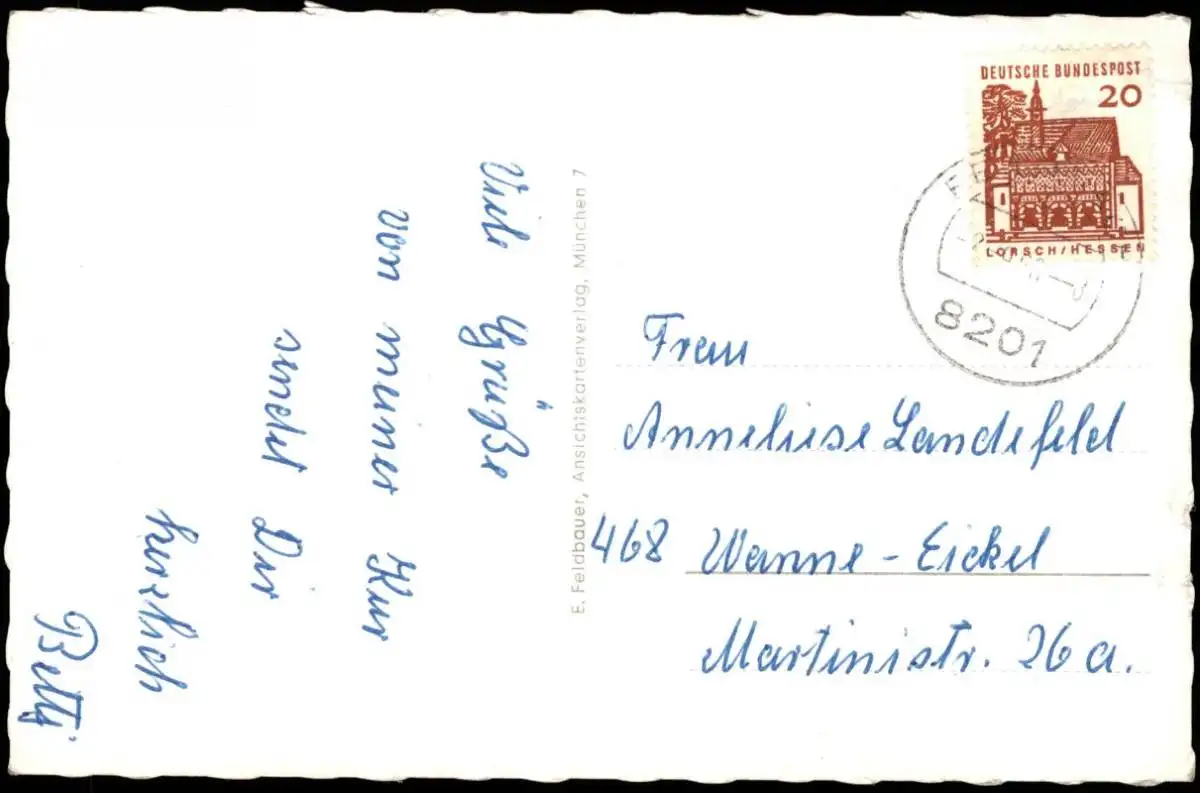 Viele Grüße
von meiner Kur
sendet Dir
herzlich
Betty
E. Feldbauer, Ansichtskartenverlag, München 7
DEUTSCHE BUNDESPOST
20
LORSCH/HESSEN
8201
Frau
Anneliese Landefeld
468 Wanne-Eickel
Martinistr. 26a.